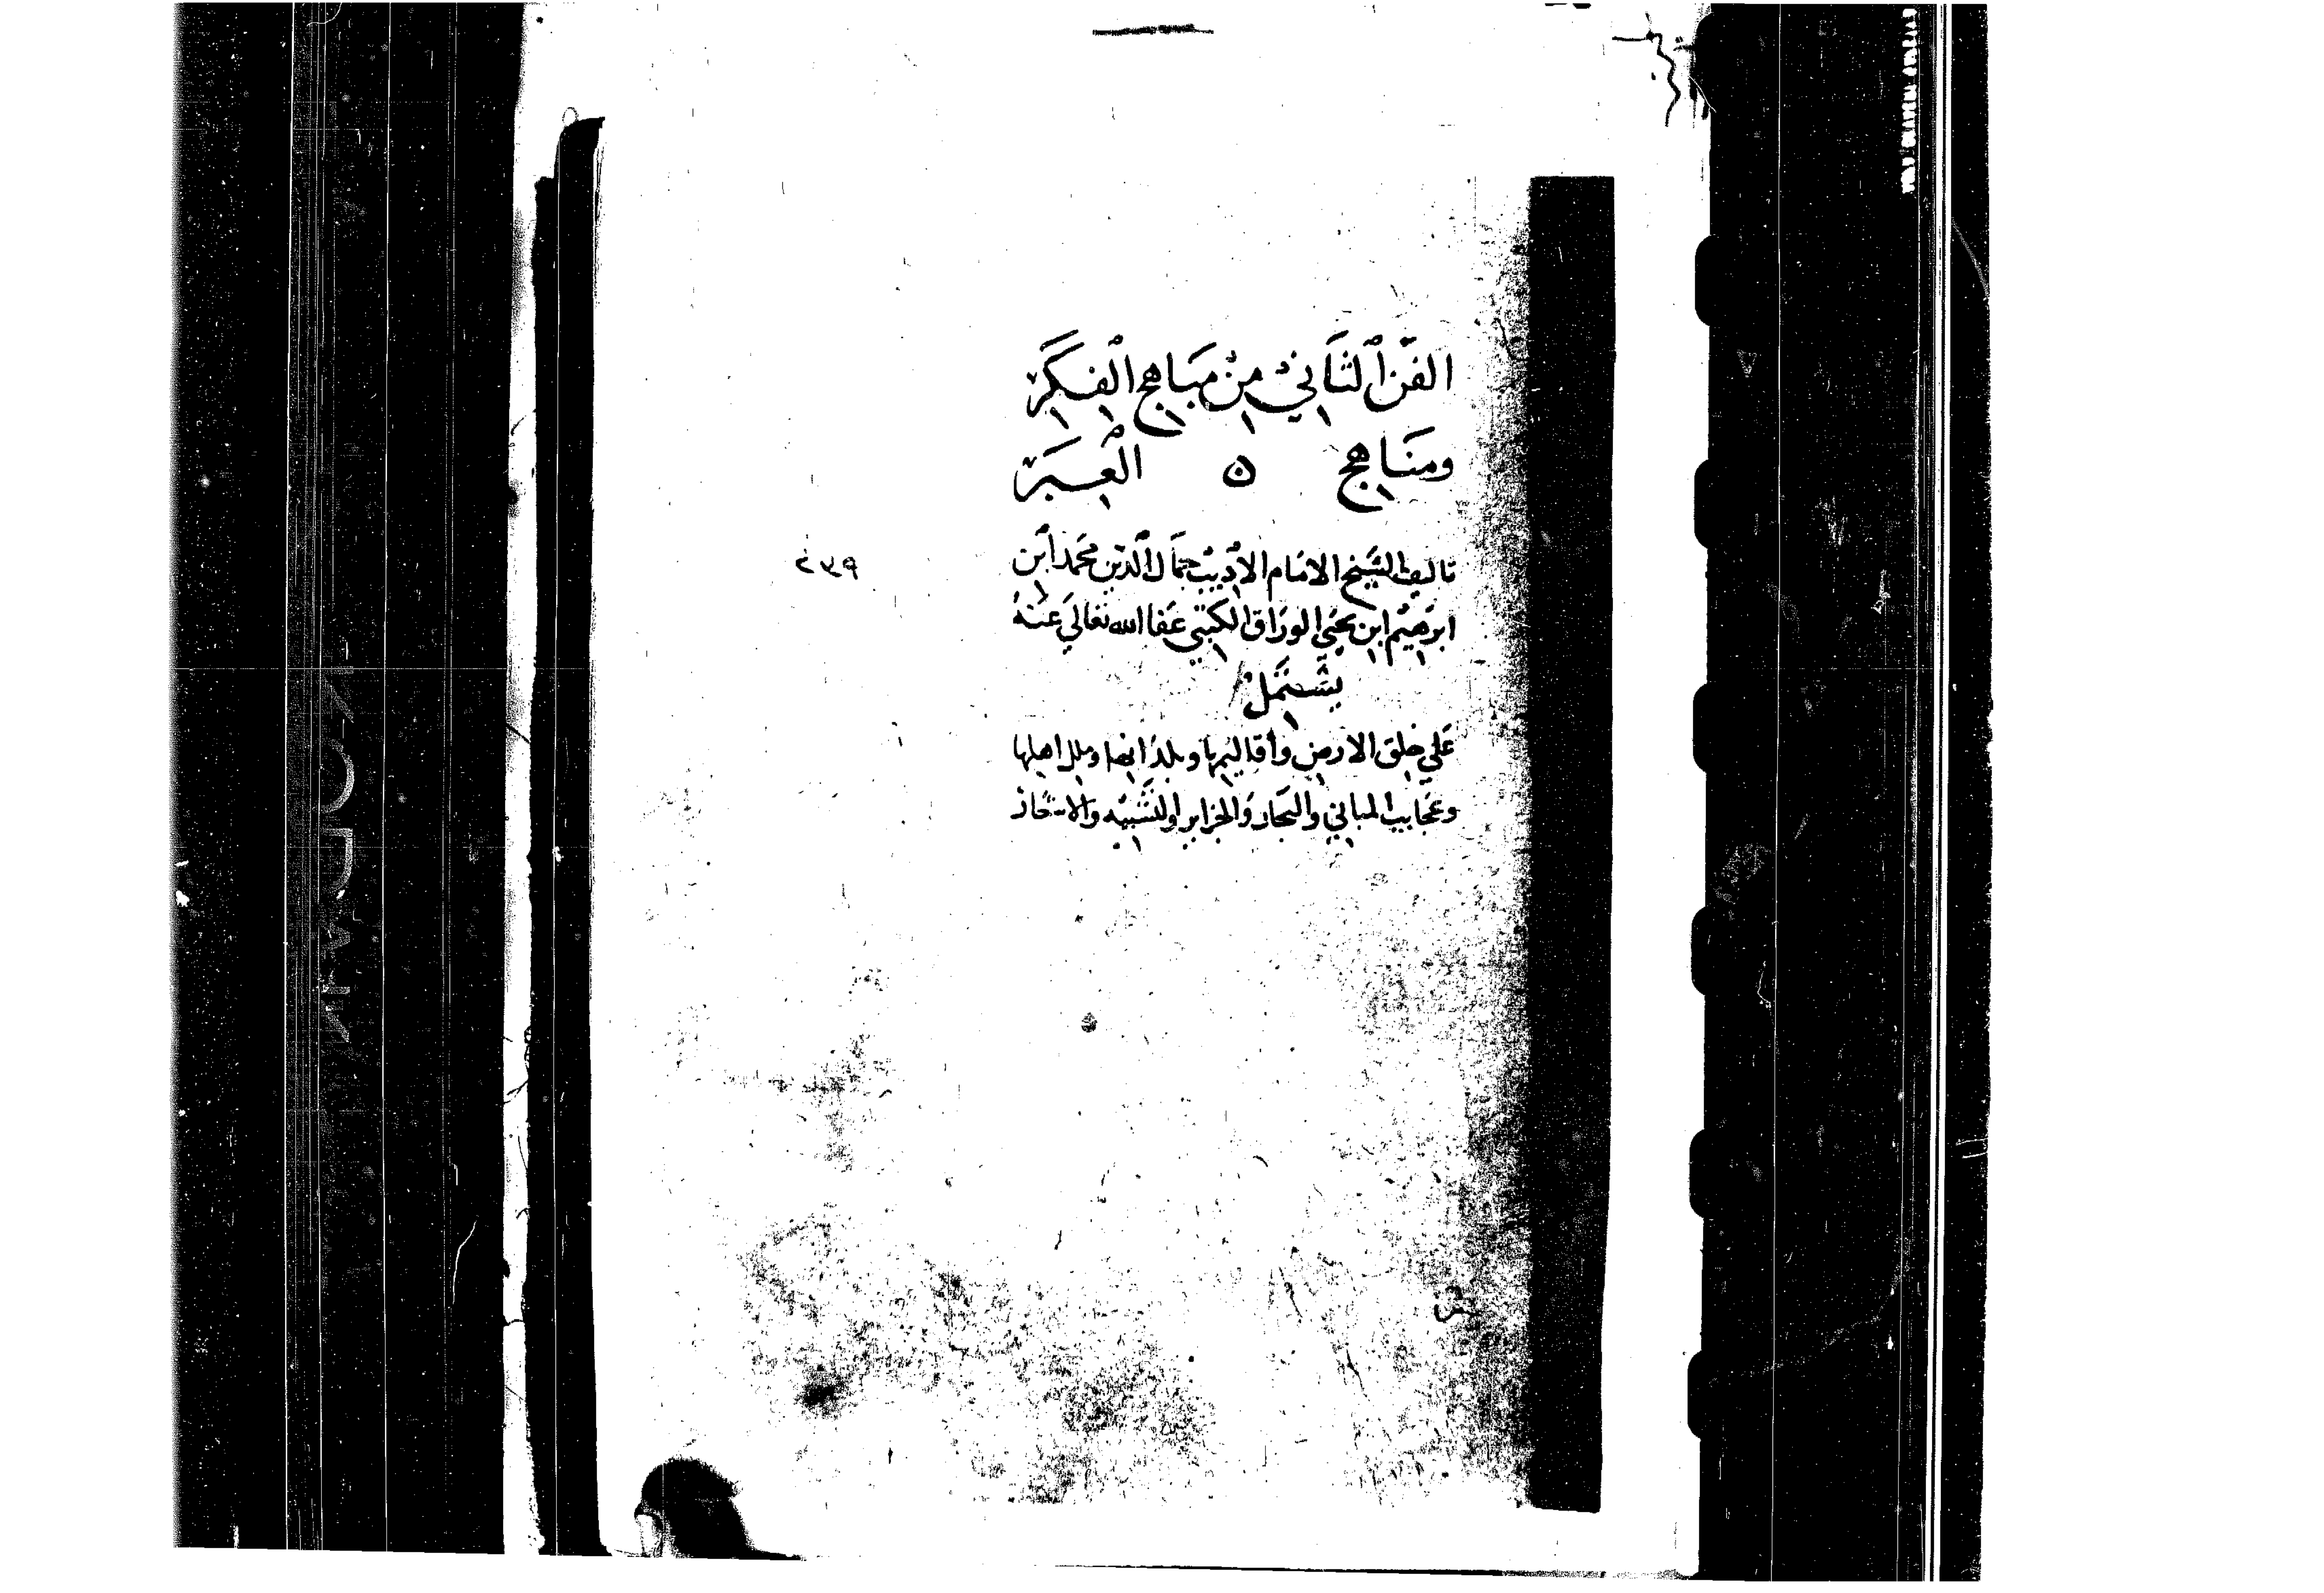 الفَنّ الثَّانِي مِنْ مَبَاهِج الفِكَر
ومَنَاهِج ن العِبَر
تاليف الشيخ الامَام الأديب جمَال الدين محمد ابن
ابرهيم ابن يحيى الوراق الكتبي عَفا الله تعالى عنه
٢٣٩
يشتمل
على خلق الارض وأقاليمها وبلدانها وملل اهلها
وعجايب المباني والبحار والجزاير